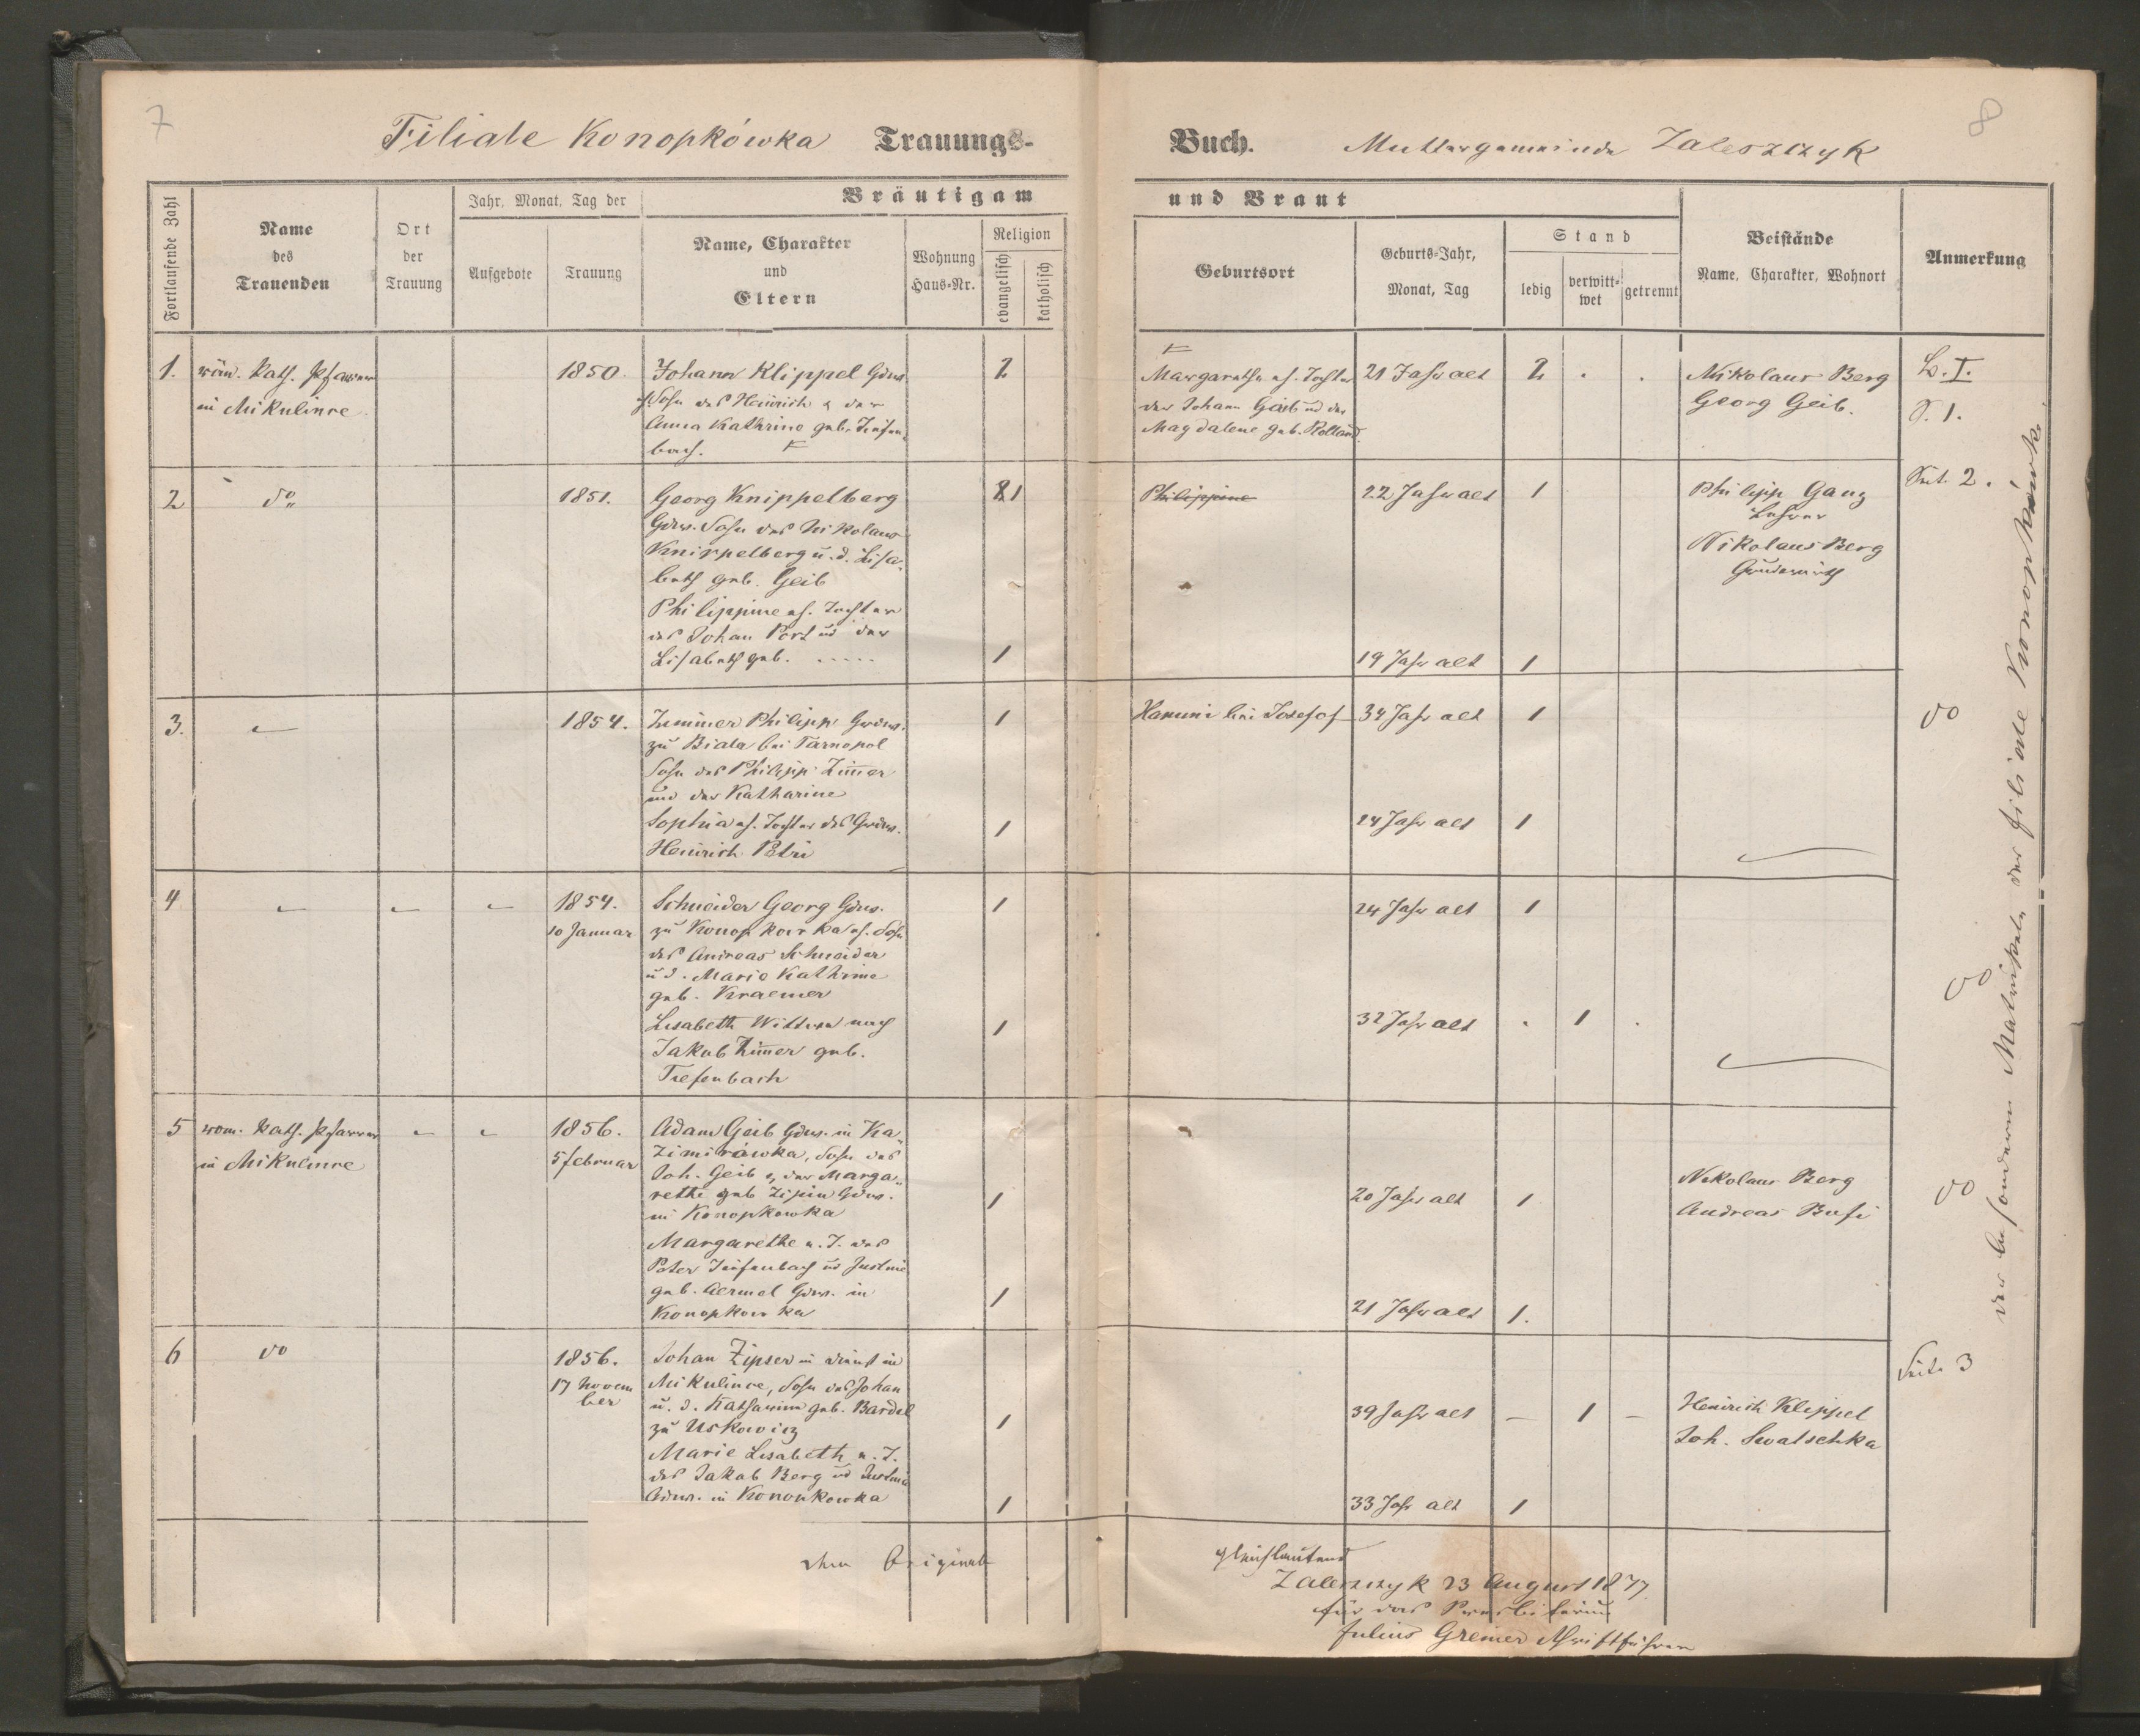 7
8
Filiale Konopkówka Trauungs-
Buch. Muttergemeinde Zaleszczyk
Fortlaufende Zahl
Name
des
Trauenden
Ort
der
Trauung
Jahr, Monat, Tag der
Aufgebote
Trauung
Bräutigam
Name, Charakter
und
Eltern
Wohnung
Haus-Nr.
Religion
evangelisch
katholisch
und Braut
Geburtsort
Geburts-Jahr,
Monat, Tag
Stand
ledig
verwitt-
wet
getrennt
Beistände
Name, Charakter, Wohnort
Anmerkung
1.
röm. kath. Pfarrer
in Mikulince
1850.
Johann Klippel Gdw.
Sohn des Heinrich & der
Anna Kathrine geb. Tiefen-
bach.
2
Margarethe eh. Tochter
des Johann Geib und der
Magdalene geb. Rolland
21 Jahr alt
2 . .
Nikolaus Berg
Georg Geib.
B. I.
S. 1.
2
do
1851.
Georg Knippelberg
Gdw. Sohn des Nikolaus
Knippelberg u. d. Lisa-
beth geb. Geib
Philippine eh. Tochter
des Johan Port und der
Lisabeth geb. .....
1
1
Philippine
22 Jahr alt
1
19 Jahr alt
1
Philipp Ganz
Lehrer
Nikolaus Berg
Grundwirth
Seit. 2.
3.
1854.
Zimmer Philipp Grdw.
zu Biala bei Tarnopol
Sohn des Philipp Zimmer
und der Katharine
Sophia eh. Tochter des Grdw.
Heinrich Petri
1
1
Hanuni bei Josefof
34 Jahr alt
1
24 Jahr alt
1
do
4
1854.
10 Januar
Schneider Georg Gdw.
zu Konopkowka eh. Sohn
des Andreas Schneider
u d. Marie Kathrine
geb. Kraemer
Lisabeth Wittwe nach
Jakob Zimmer geb.
Tiefenbach
1
1
24 Jahr alt
1
32 Jahr alt
. 1 .
do
5
rom. kath. Pfarrer
in Mikulince
1856.
5 februar
Adam Geib Gdw. in Ka-
zimirówka, Sohn des
Joh. Geib & der Marga-
rethe geb Zipin Gdw.
in Konopkowka
Margarethe e. T. des
Peter Tiefenbach und Justine
geb. Aermel Gdw. in
Konopkowka
1
1
20 Jahr alt
1
21 Jahr alt
1.
Nikolaus Berg
Andreas Bufi
do
6
do
1856.
17 Novem
ber
Johan Zipser in dienst in
Mikulince, Sohn des Johan
u. d. Katharina geb. Bardel
zu Uskowicz
Marie Lisabeth e. T.
des Jakob Berg und Justine
Gdw. in Konopkowka
1
1
39 Jahr alt
– 1 –
33 Jahr alt
1
Heinrich Klippel
Joh. Swatschka
Seite 3
der besondern Matrikeln der filiale Konopkówka
dem Original
gleichlautend
Zaleszczyk 23 August 1877.
für das Presbiterium
Julius Greiner Schriftführer